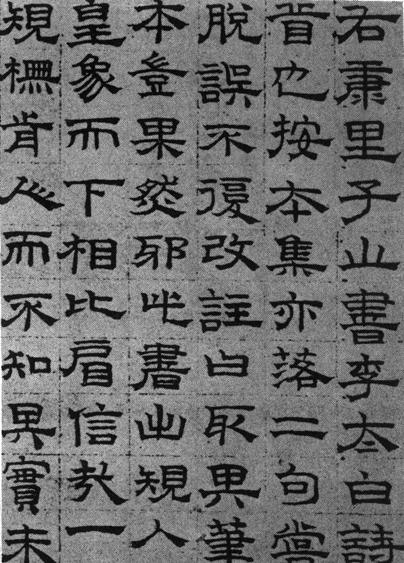 右肅里子山書李太白詩
首也按本集亦落二句嘗
脫誤不復改註白取其筆
本豈果然邪此書出規人
皇象而下相比肩信哉一
規橅肖人而不知其實未